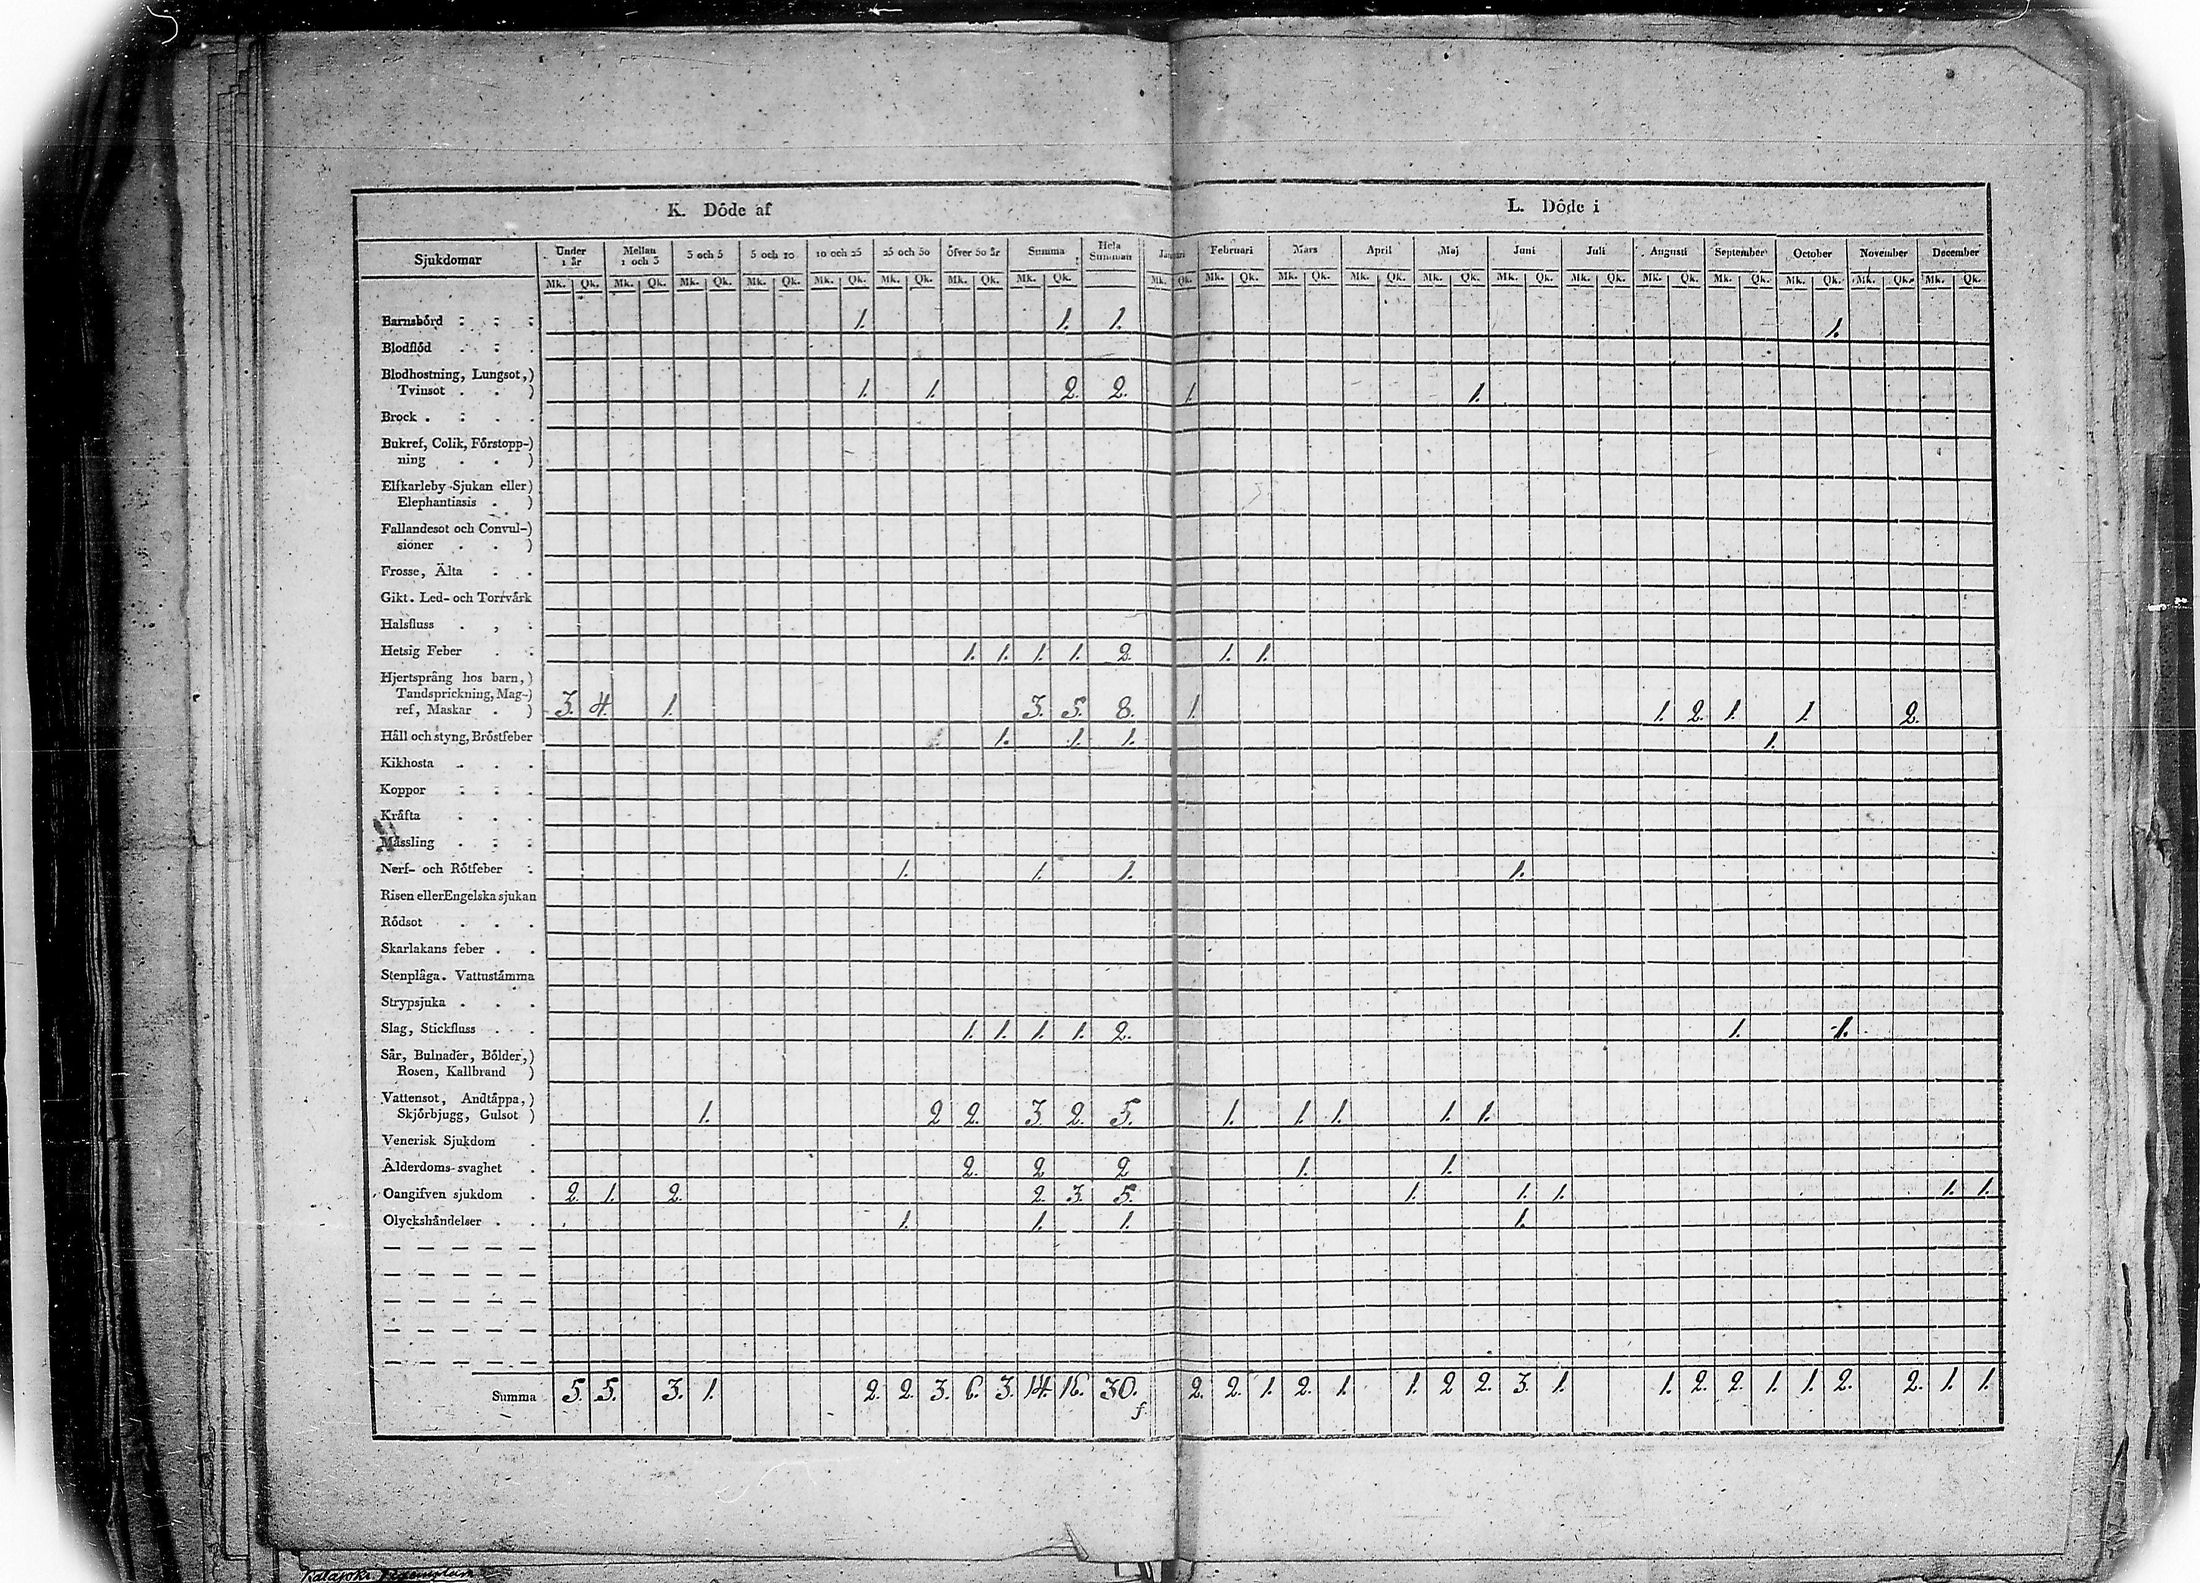 K. Döde af L. Döde i
Sjukdomar Under 1 år Mellan 1 och 3 3 och 5 5 och 10 10 och 25 25 och 50 Öfver 50 år Summa Hela Summan Januari Februari Mars April Maj Juni Juli Augusti September October November December
Mk. Qk. Mk. Qk. Mk. Qk. Mk. Qk. Mk. Qk. Mk. Qk. Mk. Qk. Mk. Qk. Mk. Qk. Mk. Qk. Mk. Qk. Mk. Qk. Mk. Qk. Mk. Qk. Mk. Qk. Mk. Qk. Mk. Qk. Mk. Qk. Mk. Qk. Mk. Qk.
Barnsbörd 1. 1. 1. 1.
Blodflöd
Blodhostning, Lungsot,)
Tvinsot . . ) 1. 1. 2. 2. 1. 1.
Brock
Bukref, Colik, Förstopp-)
ning . . )
Elfkarleby-Sjukan eller)
Elephantiasis . )
Fallandesot och Convul-)
sioner . . )
Frosse, Älta
Gikt. Led- och Torrvärk
Halsfluss
Hetsig Feber 1. 1. 1. 1. 2. 1. 1.
Hjertsprång hos barn,)
Tandsprickning, Mag-)
ref, Maskar . ) 3. 4. 1. 3. 5. 8. 1. 1. 2. 1. 1. 2.
Håll och styng, Bröstfeber 1. 1. 1. 1.
Kikhosta
Koppor
Kräfta
Mässling
Nerf- och Rötfeber 1. 1. 1. 1.
Risen eller Engelska sjukan
Rödsot
Skarlakans feber
Stenplåga. Vattustämma
Strypsjuka
Slag, Stickfluss 1. 1. 1. 1. 2. 1. 1.
Sår, Bulnader, Bölder,)
Rosen, Kallbrand )
Vattensot, Andtäppa,)
Skjörbjugg, Gulsot ) 1. 2 2. 3. 2. 5. 1. 1. 1. 1. 1.
Venerisk Sjukdom
Ålderdoms-svaghet 2. 2 2 1. 1.
Oangifven sjukdom 2. 1. 2. 2. 3. 5. 1. 1. 1. 1. 1.
Olyckshändelser 1. 1. 1. 1.
Summa 5. 5. 3. 1. 2. 2. 3. 6. 3. 14. 16. 30. 2. 2. 1. 2. 1. 1. 2 2. 3. 1. 1. 2. 2. 1. 1. 2. 2. 1. 1.